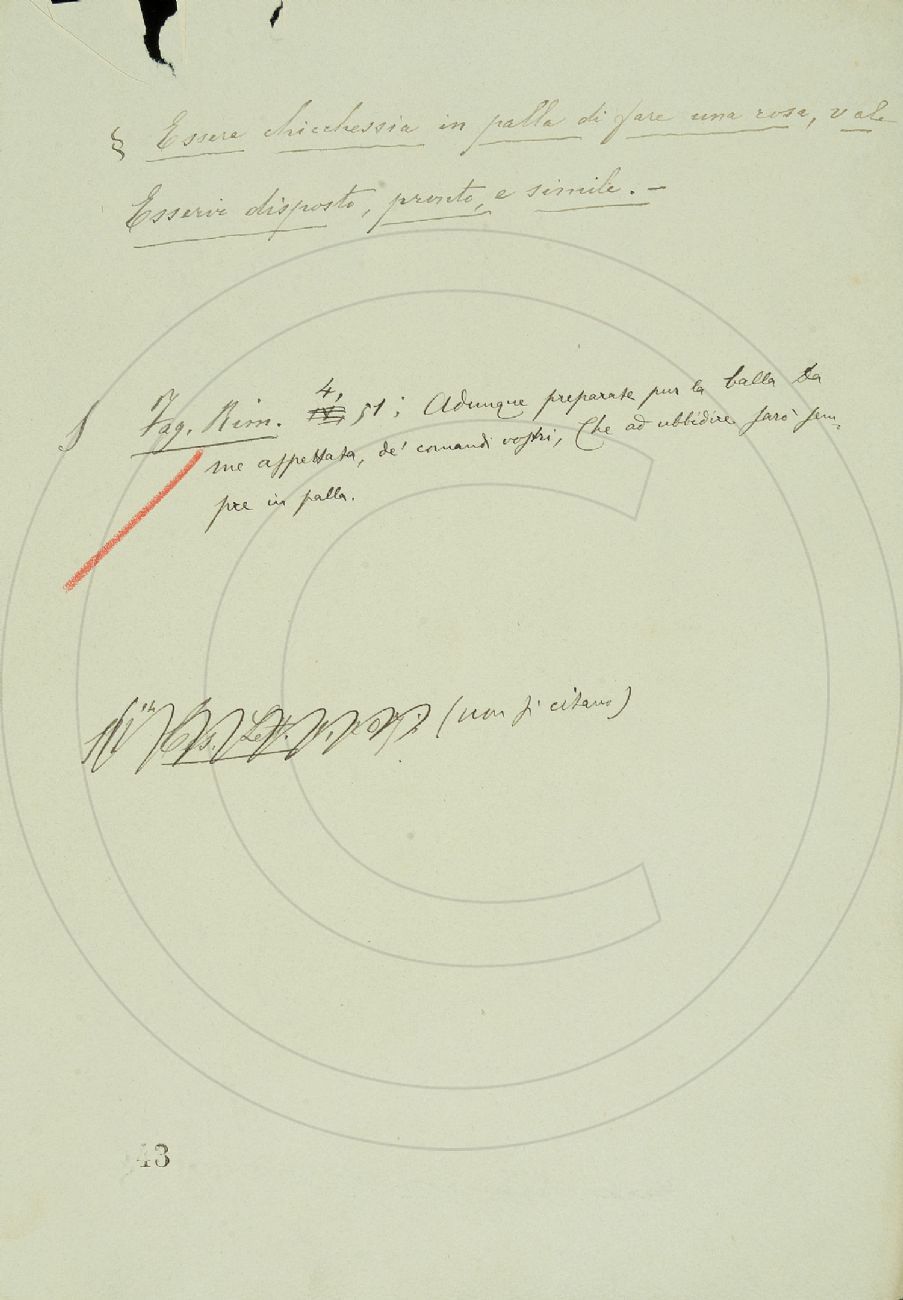 § Essere chicchessia in palla di fare una cosa, vale
Esservi disposto, pronto, e simile. —
§ Fag. Rim. 4, 51: Adunque preparate pur la balla Da
me aspettata, de' comandi vostri, Che ad ubbidire sarò sem-
pre in palla.
(non si citano)
43